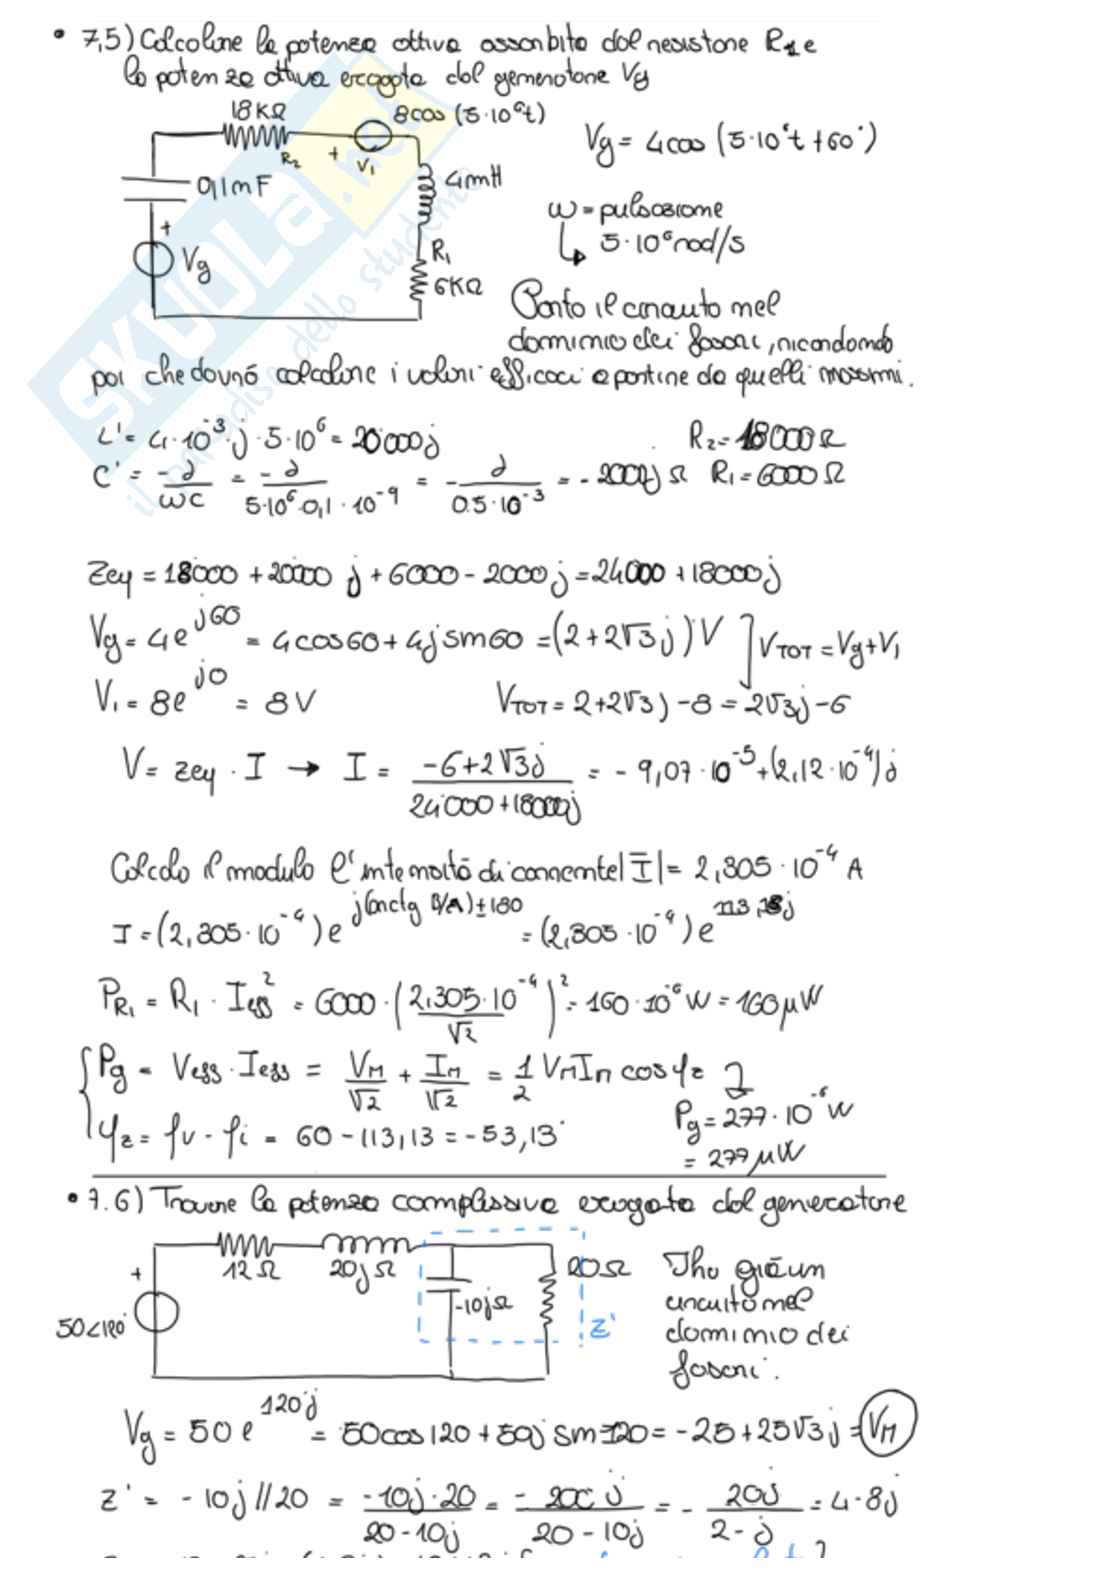 • 7,5) Calcolare la potenza attiva assorbita dal resistore R1 e
la potenza attiva erogata dal generatore Vg
18KΩ
8cos (5·10⁶t)
R2
+
V1
Vg = 4cos (5·10⁶t +60°)
0,1mF
4mH
+
Vg
R1
6KΩ
ω = pulsazione
↳ 5·10⁶ rad/s
Porto il circuito nel
dominio dei fasori, ricordando
poi che dovrò calcolare i valori efficaci a partire da quelli massimi.
L' = 4·10⁻³·j·5·10⁶ = 20000j
R2 = 18000Ω
C' = -j/ωC = -j/(5·10⁶·0,1·10⁻⁹) = -j/(0.5·10⁻³) = -2000j Ω
R1 = 6000Ω
Zeq = 18000 + 20000 j + 6000 - 2000j = 24000 + 18000j
Vg = 4e^j60 = 4cos60 + 4j sin60 = (2+2√3j) V ] VTOT = Vg+V1
V1 = 8e^j0 = 8V
VTOT = 2+2√3j - 8 = 2√3j - 6
V = zeq · I → I = (-6+2√3j)/(24000+18000j) = - 9,07·10⁻⁵ + (2,12·10⁻⁴)j
Calcolo il modulo l'intensità di corrente |I| = 2,305·10⁻⁴ A
I = (2,305·10⁻⁴)e^j(arctg B/A)±180 = (2,305·10⁻⁴)e^113,13j
PR1 = R1 · Ieff² = 6000·(2,305·10⁻⁴/√2)² = 160·10⁻⁶ W = 160μW
{ Pg = Veff · Ieff = VM/√2 + IM/√2 = 1/2 VM Im cosφz
φz = φv - φi = 60 - 113,13 = -53,13°
Pg = 277·10⁻⁶ W
= 277 μW
• 7.6) Trovare la potenza complessiva erogata dal generatore
12Ω
20jΩ
20Ω
+
-10jΩ
50<120°
z'
Iho già un
circuito nel
dominio dei
fasori.
Vg = 50 e^120j = 50cos120 + 50j sin120 = -25 + 25√3j = VM
z' = -10j//20 = (-10j·20)/(20-10j) = - 200 j/(20-10j) = - 20j/(2-j) = 4-8j